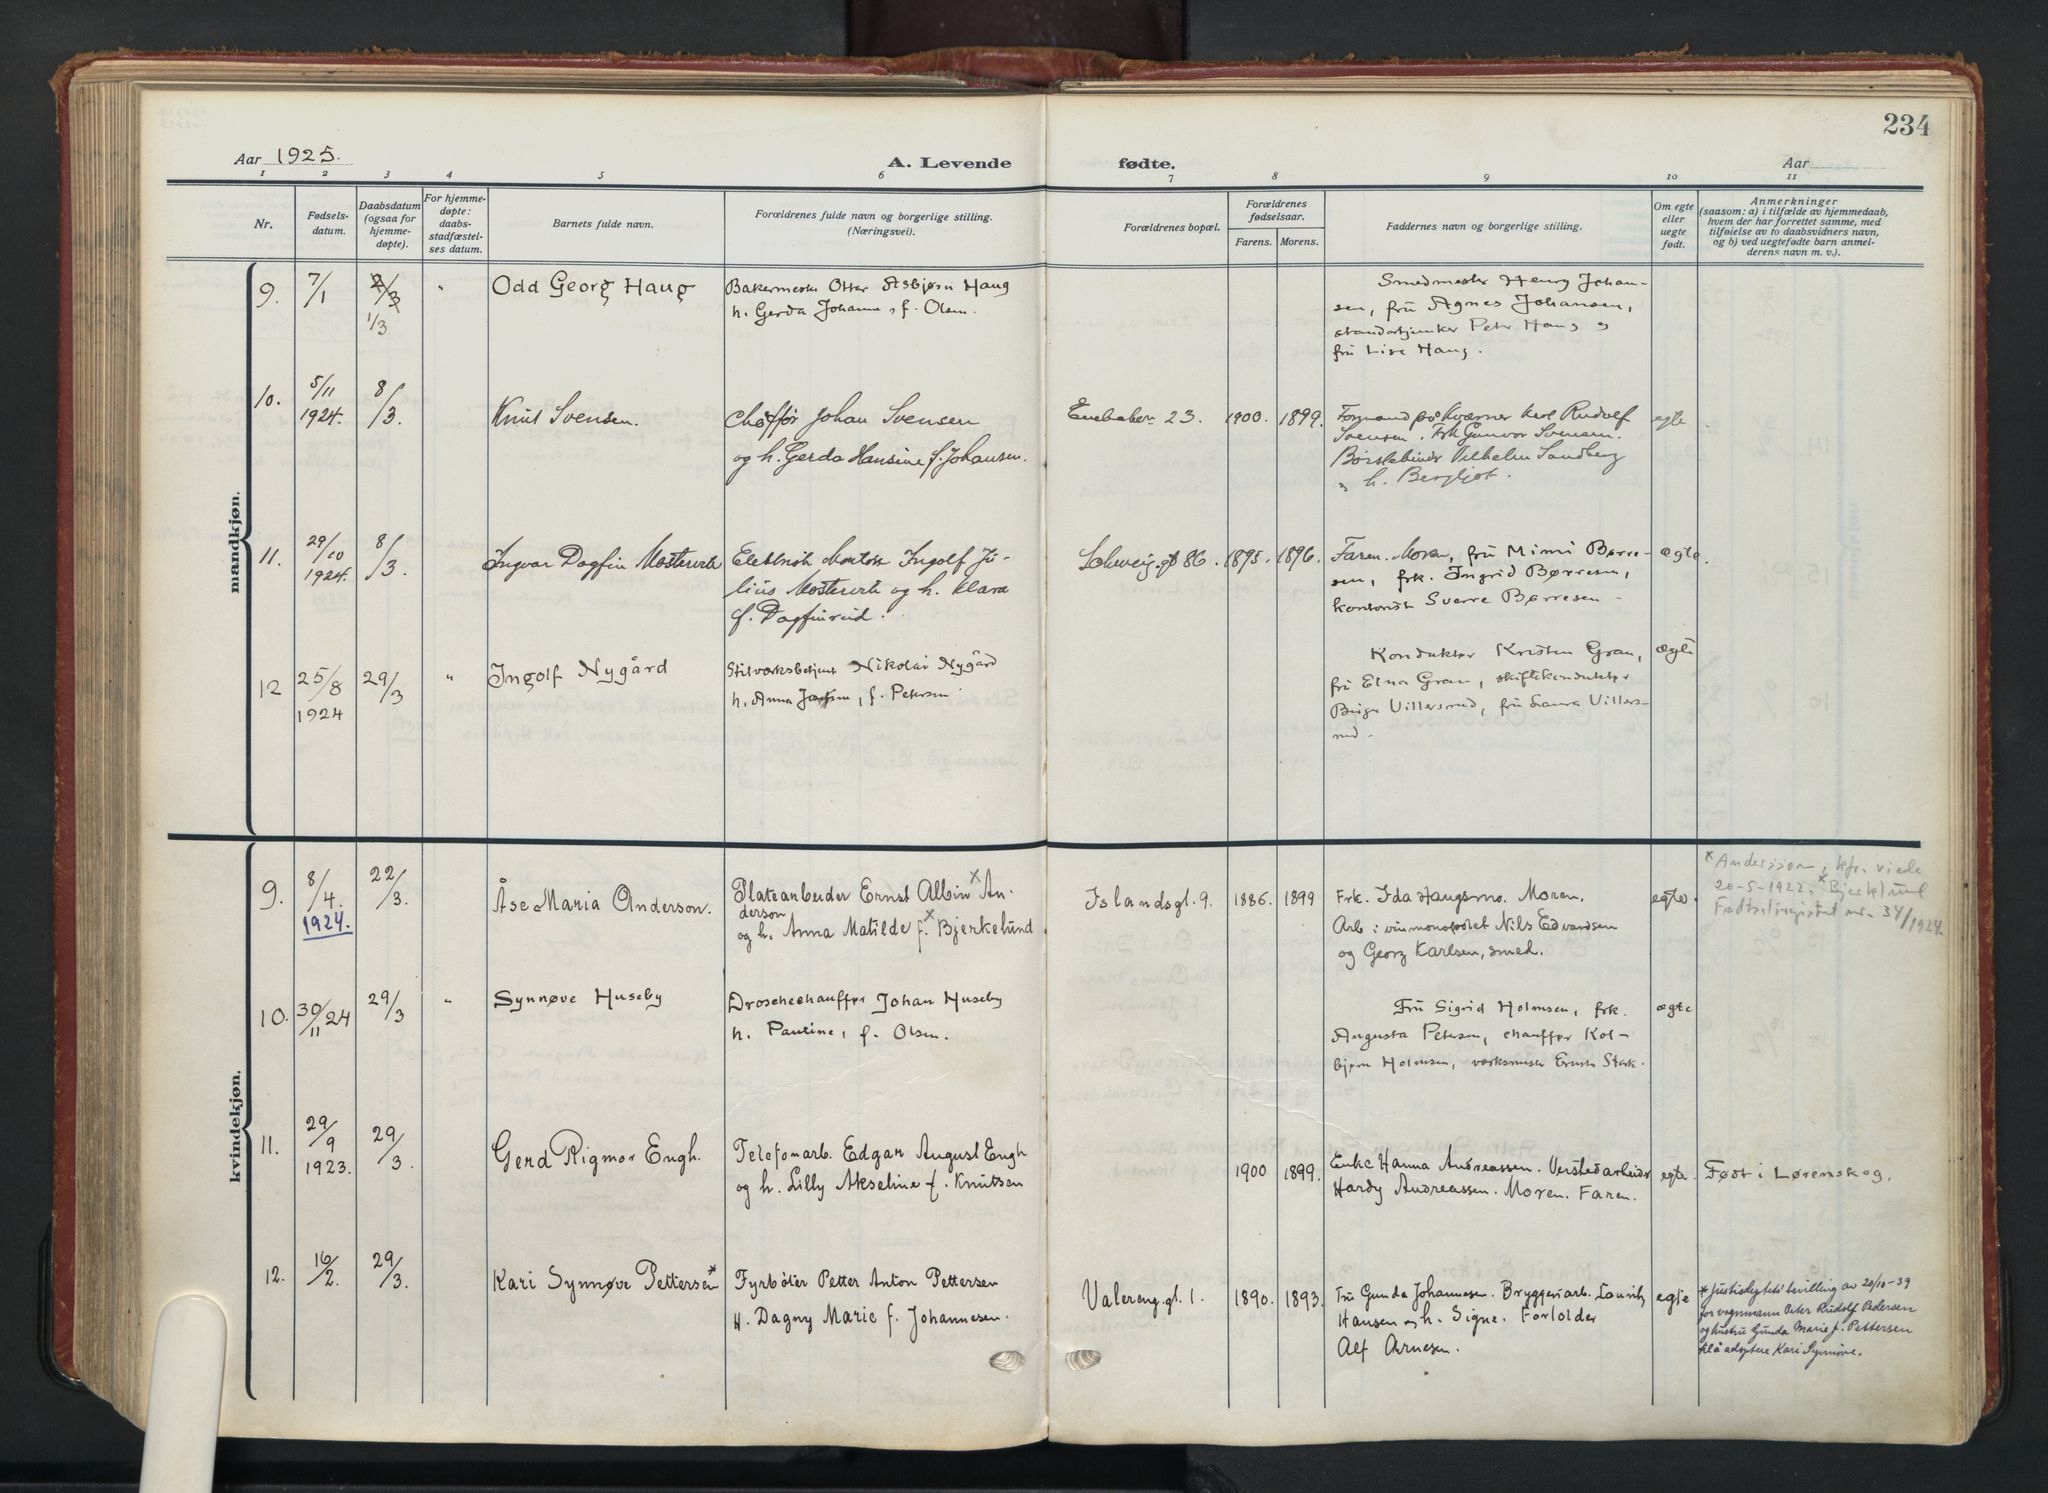 234
Aar 1925.
A. Levende fødte.
Aar
1 2 3 4 5 6 7 8 9 10 11
Nr.
Fødsels-
datum.
Daabsdatum
(ogsaa for
hjemme-
døpte).
For hjemme-
døpte:
daabs-
stadfæstel-
ses datum.
Barnets fulde navn.
Forældrenes fulde navn og borgerlige stilling.
(Næringsvei).
Forældrenes bopæl.
Forældrenes
fødselsaar.
Farens. Morens.
Faddernes navn og borgerlige stilling.
Om egte
eller
uegte
født.
Anmerkninger
(saasom: a) i tilfælde av hjemmedaab,
hvem der har forrettet samme, med
tilføielse av to daabsvidners navn,
og b) ved uegtefødte barn anmel-
derens navn m. v.).
mandkjøn.
9.
7/1
2/3
1/3
"
Odd Georg Haug
Bakermester Otter Asbjørn Haug
h. Gerda Johanne, f. Olsen.
Smedmester Henry Johan-
sen, fru Agnes Johansen,
standartjunker Peter Haug og
fru Lise Haug.
10.
5/11
1924.
8/3.
Knut Svensen.
Chaffør Johan Svensen
og h. Gerda Hansine f. Johansen.
Enebakv. 23.
1900.
1899.
Formand på Kværner Karl Rudolf
Svensen. Frk Gunvor Svensen.
Børstebinder Vilhelm Sandberg
" h. Bergljot.
egte
11.
29/10
1924.
8/3.
Ingvar Dagfin
Elektrisk Montør Ingolf Ju-
lius og h. Klara
f.
Schweig.gt 86.
1895.
1896.
Faren. Moren, fru Mimi Børre-
sen, frk. Ingrid Børresen,
kontorist Sverre Børresen
ægte
12
25/8
1924
29/3
"
Ingolf Nygård
Nikolai Nygård
h. Anna , f. Petersen.
Konduktør Kristen Gran,
fru Elna Gran, skiftekonduktør
Birger Villersrud, fru Laura Villers-
rud.
ægte
kvindekjøn.
9.
8/4.
1924.
22/3.
Åse Maria Anderson.
Platearbeider Ernst Albin x An-
derson
og h. Anna Matilde f. x Bjerkelund
Islandsgt. 9.
1886.
1899
Frk. Ida Haugsmo. Moren.
Arb i vinmonopolet Nils Edvardsen
og Georg Karlsen, smed.
egte.
x Andersson, kfr. viede
20-5-1922. x Bjerklund
Fødselsregistret nr. 34/1924.
10.
30/11 24
29/3
"
Synnøve Huseby
Droschechauffør Johan Huseby
h. Pauline, f. Olsen.
Fru Sigrid Holmsen, frk.
Augusta Petersen, chauffør Kol-
bjørn Holmsen, værksmester Ernst Stark.
ægte
11.
29/9
1923.
29/3.
Gerd Rigmor Engh.
Telefonarb. Edgar August Engh
og h. Lilly Akseline f. Knutsen
1900
1899.
Enke Hanna Andreassen. Verkstedarbeider
Hardy Andreassen. Moren. Faren.
egte.
Født i Lørenskog.
12.
16/2.
29/3.
Kari Synnøve Pettersen *
Fyrbøter Petter Anton Pettersen
H. Dagny Marie f. Johannesen.
Valereng.gt. 1.
1890.
1893.
Fru Gunda Johannesen. Bryggeriarb. Lauritz
Hansen og h. Signe. Forlolder
Alf Arnesen.
egte
* Justisdeptets bevilling av 20/10-39
for vognmann Peter Rudolf Pedersen
og hustru Gunda Marie f. Pettersen
til å adoptere Kari Synnøve.